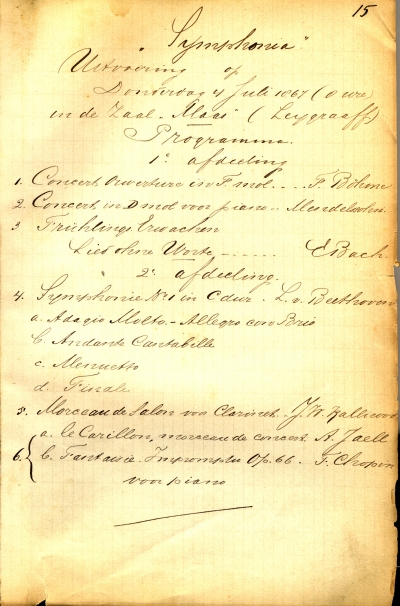 15
"Symphonia"
Uitvoering op
Donderdag 4 Juli 1867 (8 ure)
in de Zaal - Maas (Leygraaff)
Programma.
1e afdeeling
1. Concert Ouverture in F mol .... F. Böhme
2. Concert in D mol voor piano .. Mendelssohn.
3 Frühlings Erwachen
Lied ohne Worte ------ E Bach.
2e afdeeling.
4. Symphonie No 1 in C dur . L. v. Beethoven
a. Adagio Molto. - Allegro con Brio
b. Andante Cantabille
c. Menuetto
d. Finale
5. Morceau de Salon voor Clarinet . J. W. Kalliwoda
6. { a. le Carillon, morceau de concert. A. Jaell
b. Fantaisie - Impromptu Op. 66 . F. Chopin
voor piano